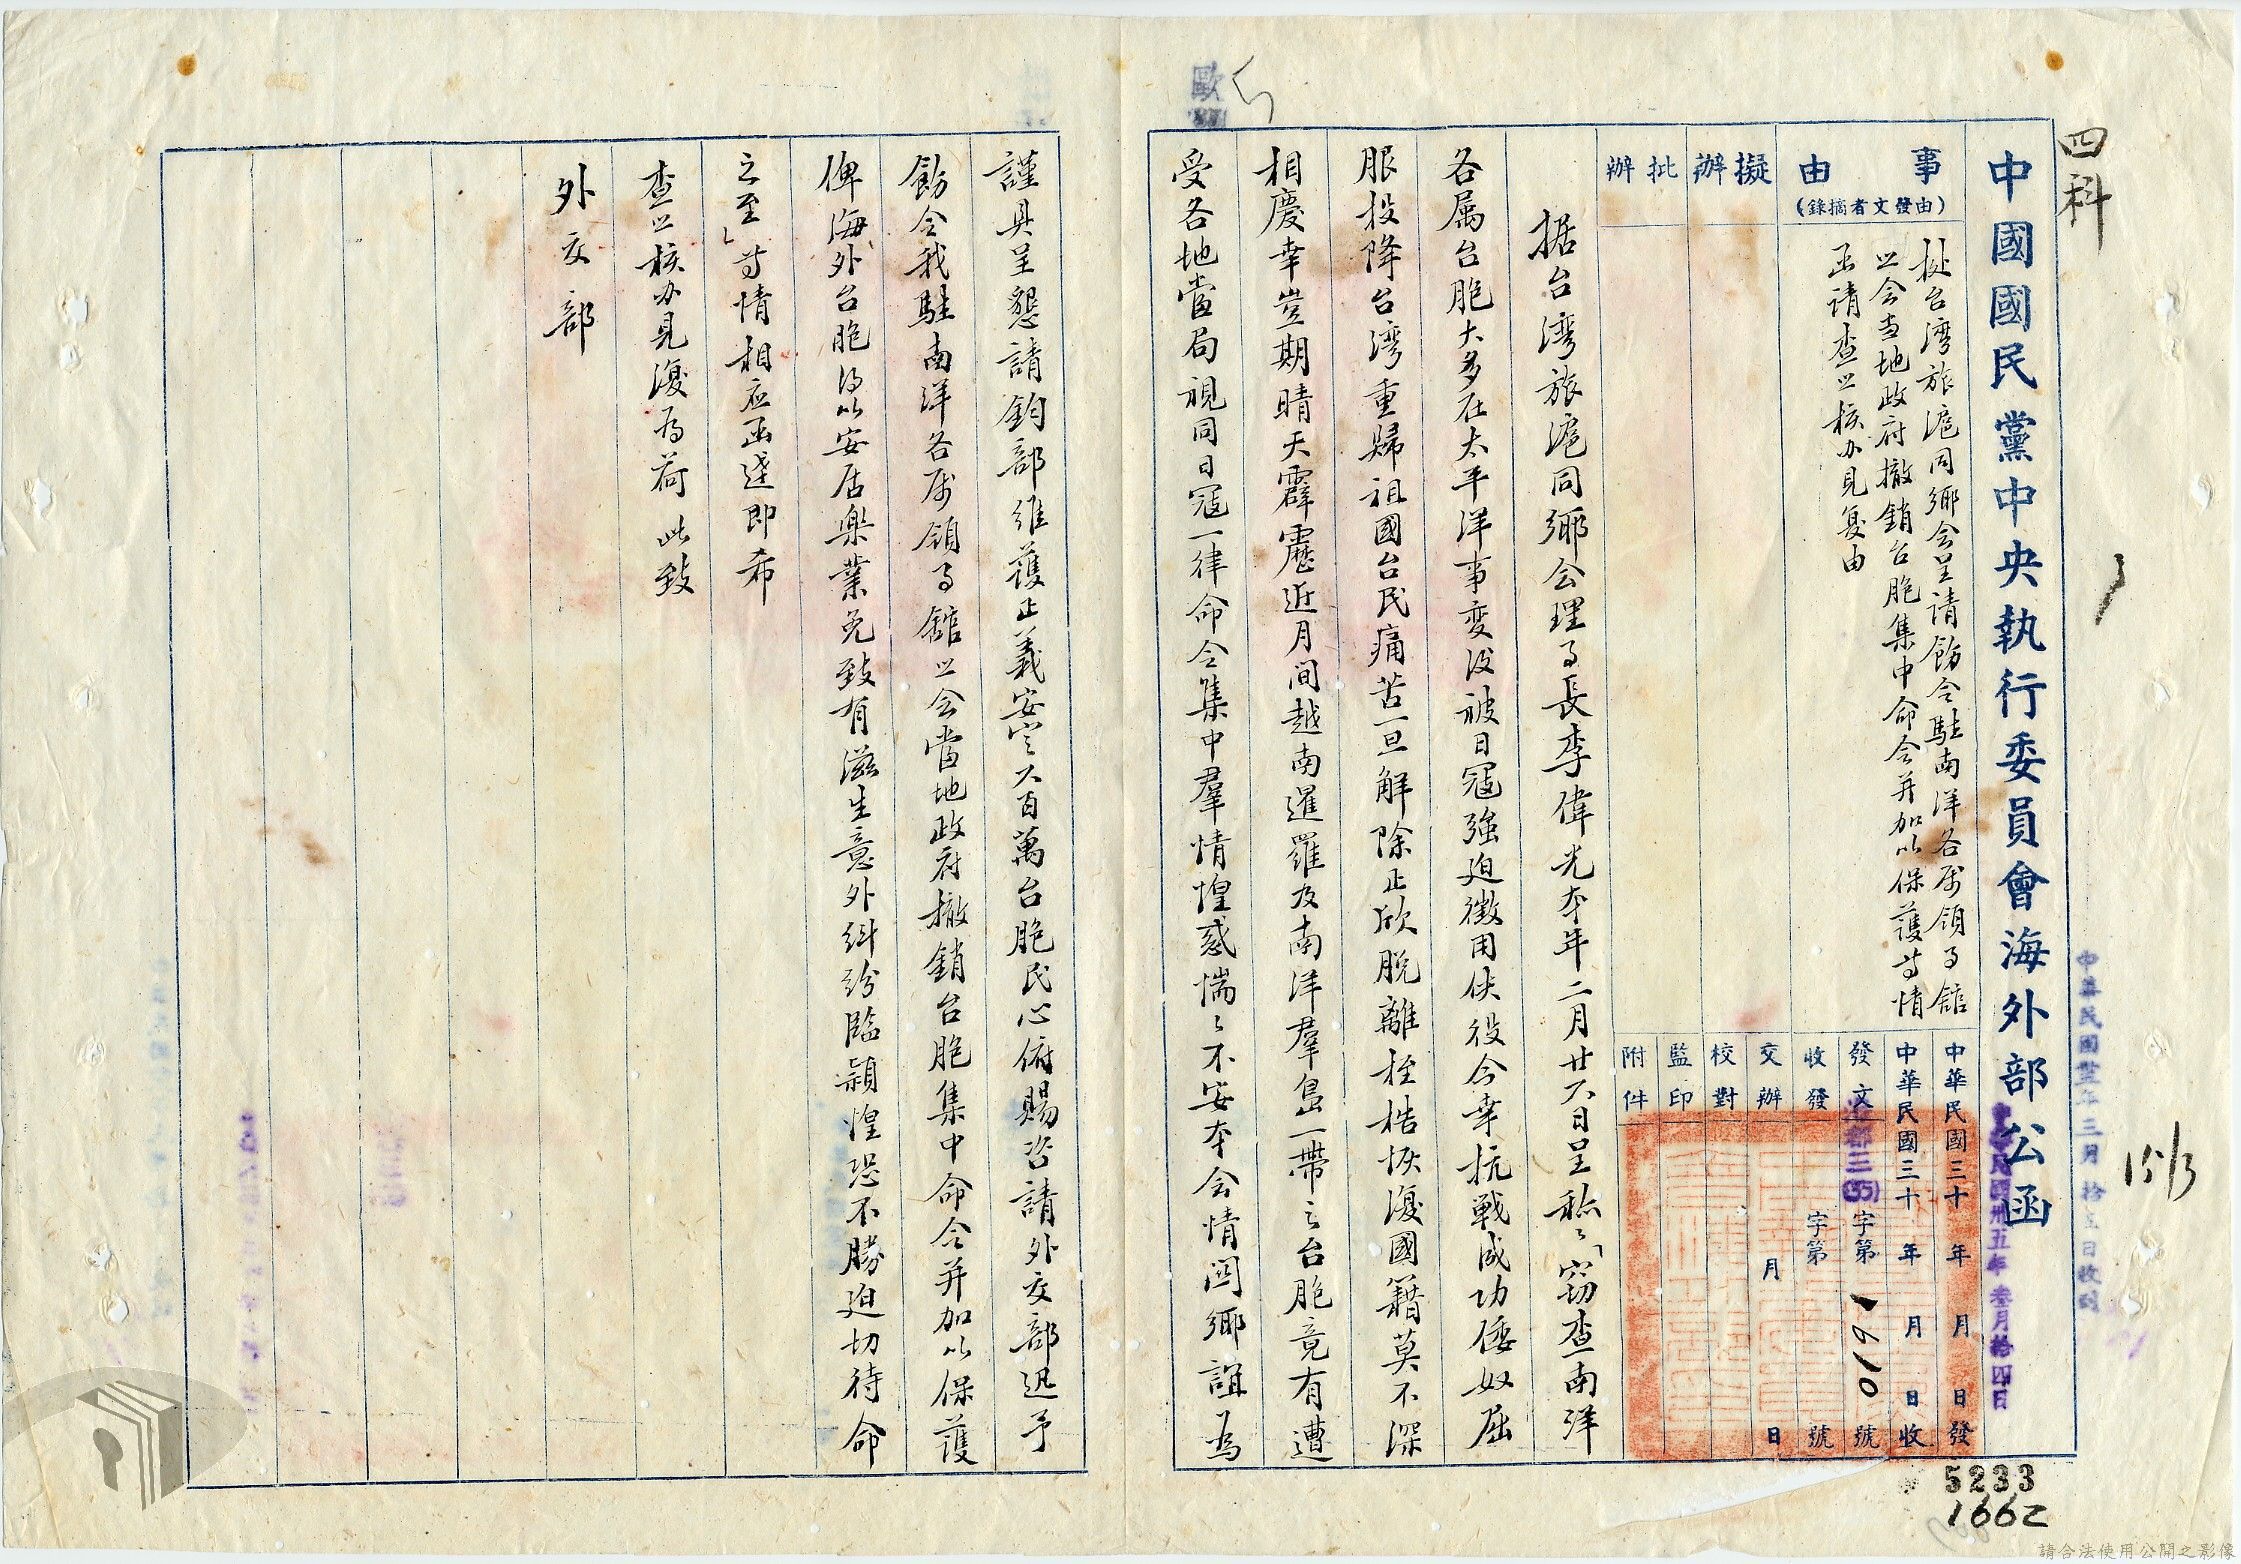 四科
中國國民黨中央執行委員會海外部公函
中華民國卅五年三月拾五日收到
中華民國卅五年叁月拾四日
15/3
事由
(由發文者摘錄)
批台灣旅滬同鄉会呈请飭令駐南洋各属領事館
㠯会当地政府撤銷台胞集中命令并加以保護等情
函请查㠯核办見复由
擬辦
批辦
中華民國三十 年 月 日發
中華民國三十 年 月 日收
發文 渝郡三(35) 字第 1610 號
收發 字第 號
交辦 月 日
校對
監印
附件
据台湾旅滬同鄉会理事長李偉光本年二月廿六日呈称「窃查南洋
各属台胞大多在太平洋事变後被日寇強廹徵用俠役今幸抗戰成功倭奴屈
服投降台灣重歸祖國台民痛苦一旦解除正欣脱離桎梏恢復國籍莫不深
相慶幸豈期晴天霹靂近月间越南暹羅及南洋羣島一帶之台胞竟有遭
受各地當局視同日寇一律命令集中羣情惶惑惴〻不安本会情関鄉誼為
謹具呈懇請鈞部維護正義安定六百萬台胞民心俯賜咨請外交部迅予
飭令我駐南洋各属領事館㠯会當地政府撤銷台胞集中命令并加以保護
俾海外台胞得以安居樂業免致有滋生意外糾紛臨颍惶恐不勝廹切待命
之至」等情相应函達即希
查㠯核办見復為荷 此致
外交部
歐
5233
1662
請合法使用公開之影像